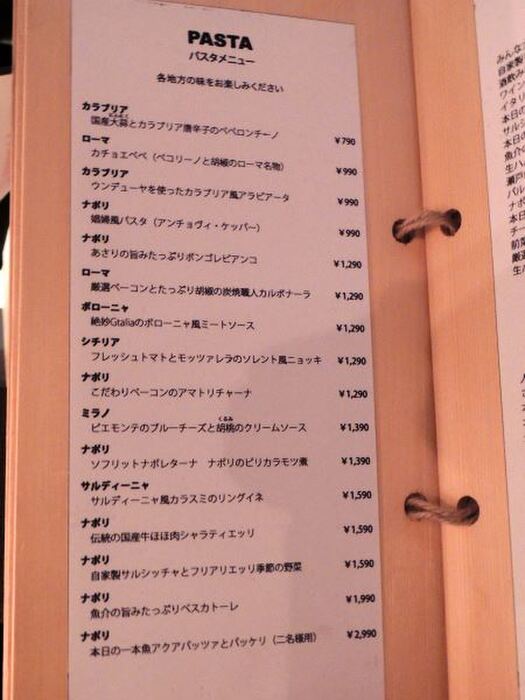 PASTA
パスタメニュー
各地方の味をお楽しみください
カラブリア
国産大蒜とカラブリア唐辛子のペペロンチーノ ¥790
ローマ
カチョエペペ（ペコリーノと胡椒のローマ名物） ¥990
カラブリア
ウンデューヤを使ったカラブリア風アラビアータ ¥990
ナポリ
娼婦風パスタ（アンチョヴィ・ケッパー） ¥990
ナポリ
あさりの旨みたっぷりボンゴレビアンコ ¥1,290
ローマ
厳選ベーコンとたっぷり胡椒の炭焼職人カルボナーラ ¥1,290
ボローニャ
絶妙Gtaliaのボローニャ風ミートソース ¥1,290
シチリア
フレッシュトマトとモッツァレラのソレント風ニョッキ ¥1,290
ナポリ
こだわりベーコンのアマトリチャーナ ¥1,290
ミラノ
くるみ
ピエモンテのブルーチーズと胡桃のクリームソース ¥1,390
ナポリ
ソフリットナポレターナ ナポリのピリカラモツ煮 ¥1,390
サルディーニャ
サルディーニャ風カラスミのリングイネ ¥1,590
ナポリ
伝統の国産牛ほほ肉シャラティエッリ ¥1,590
ナポリ
自家製サルシッチャとフリアリエッリ季節の野菜 ¥1,590
ナポリ
魚介の旨みたっぷりペスカトーレ ¥1,990
ナポリ
本日の一本魚アクアパッツァとパッケリ（二名様用） ¥2,990
みんな
自家製
酒飲み
ワイン
イタリ
本日の
サルシ
本日の
魚介の
生ハ
瀬戸
バル
ナポ
本日
チー
前菜
厳選
生ハ